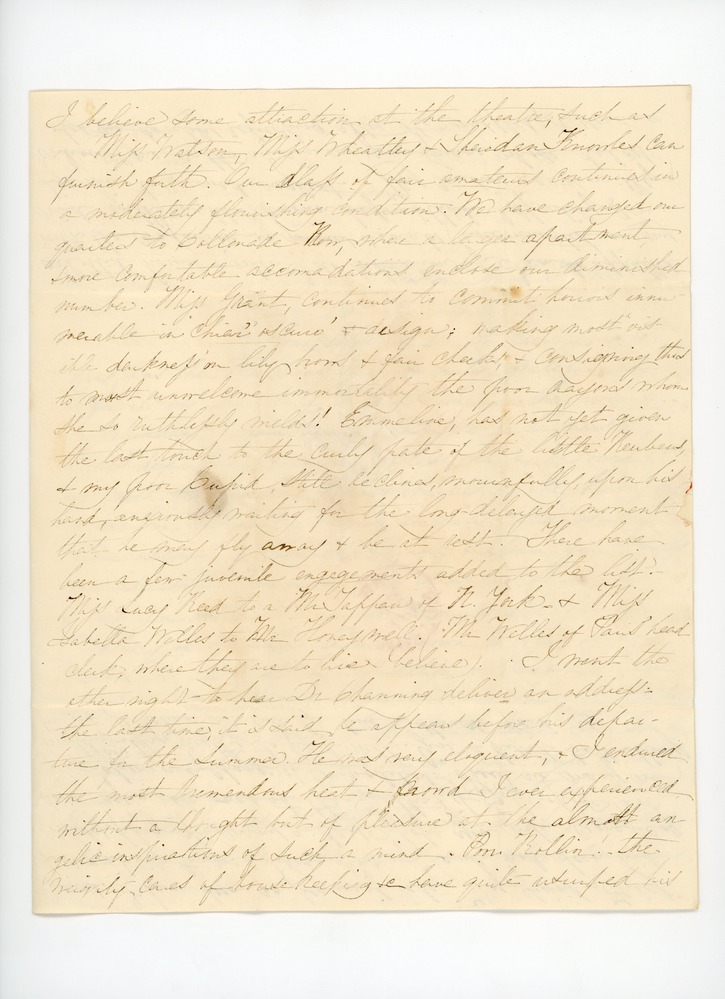 I believe some attraction at the theatre, such as
Miss Watson, Miss Wheatley & Sheridan Knowles can
furnish forth. Our class of fair amateurs continues in
a moderately flourishing condition. We have changed our
quarters to Collonade Row, where a larger apartment
& more comfortable accomodations enclose our diminished
number. Miss Grant, continues to commit horrors innu-
merable in chiar' oscuro' & design; making most vis-
ible darkness on lily brows & fair cheeks, & consigning thus
to most unwelcome immortality the poor crayons whom
she so ruthlessly wields! Emmeline, has not yet given
the last touch to the curly pate of the little Reubens,
& my poor Cupid still reclines, mournfully, upon his
hand, anxiously waiting for the long-delayed moment
that he may fly away & be at rest. There have
been a few juvenile engagements added to the list.
Miss Lucy Reed to a Mr Tappan of N. York & Miss
Isabella Welles to Mr Honeywell. (Mr Welles of Paris' head
clerk, where they are to live I believe). I went the
other night to hear Dr Channing deliver an address
the last time, it is said he appears before his depar-
ture for the summer. He was very eloquent, & I endured
the most tremendous heat & crowd I ever experienced
without a thought but of pleasure at the almost an-
gelic inspirations of such a mind. Poor Rollin! the
weighty cares of housekeeping &c have quite usurped his